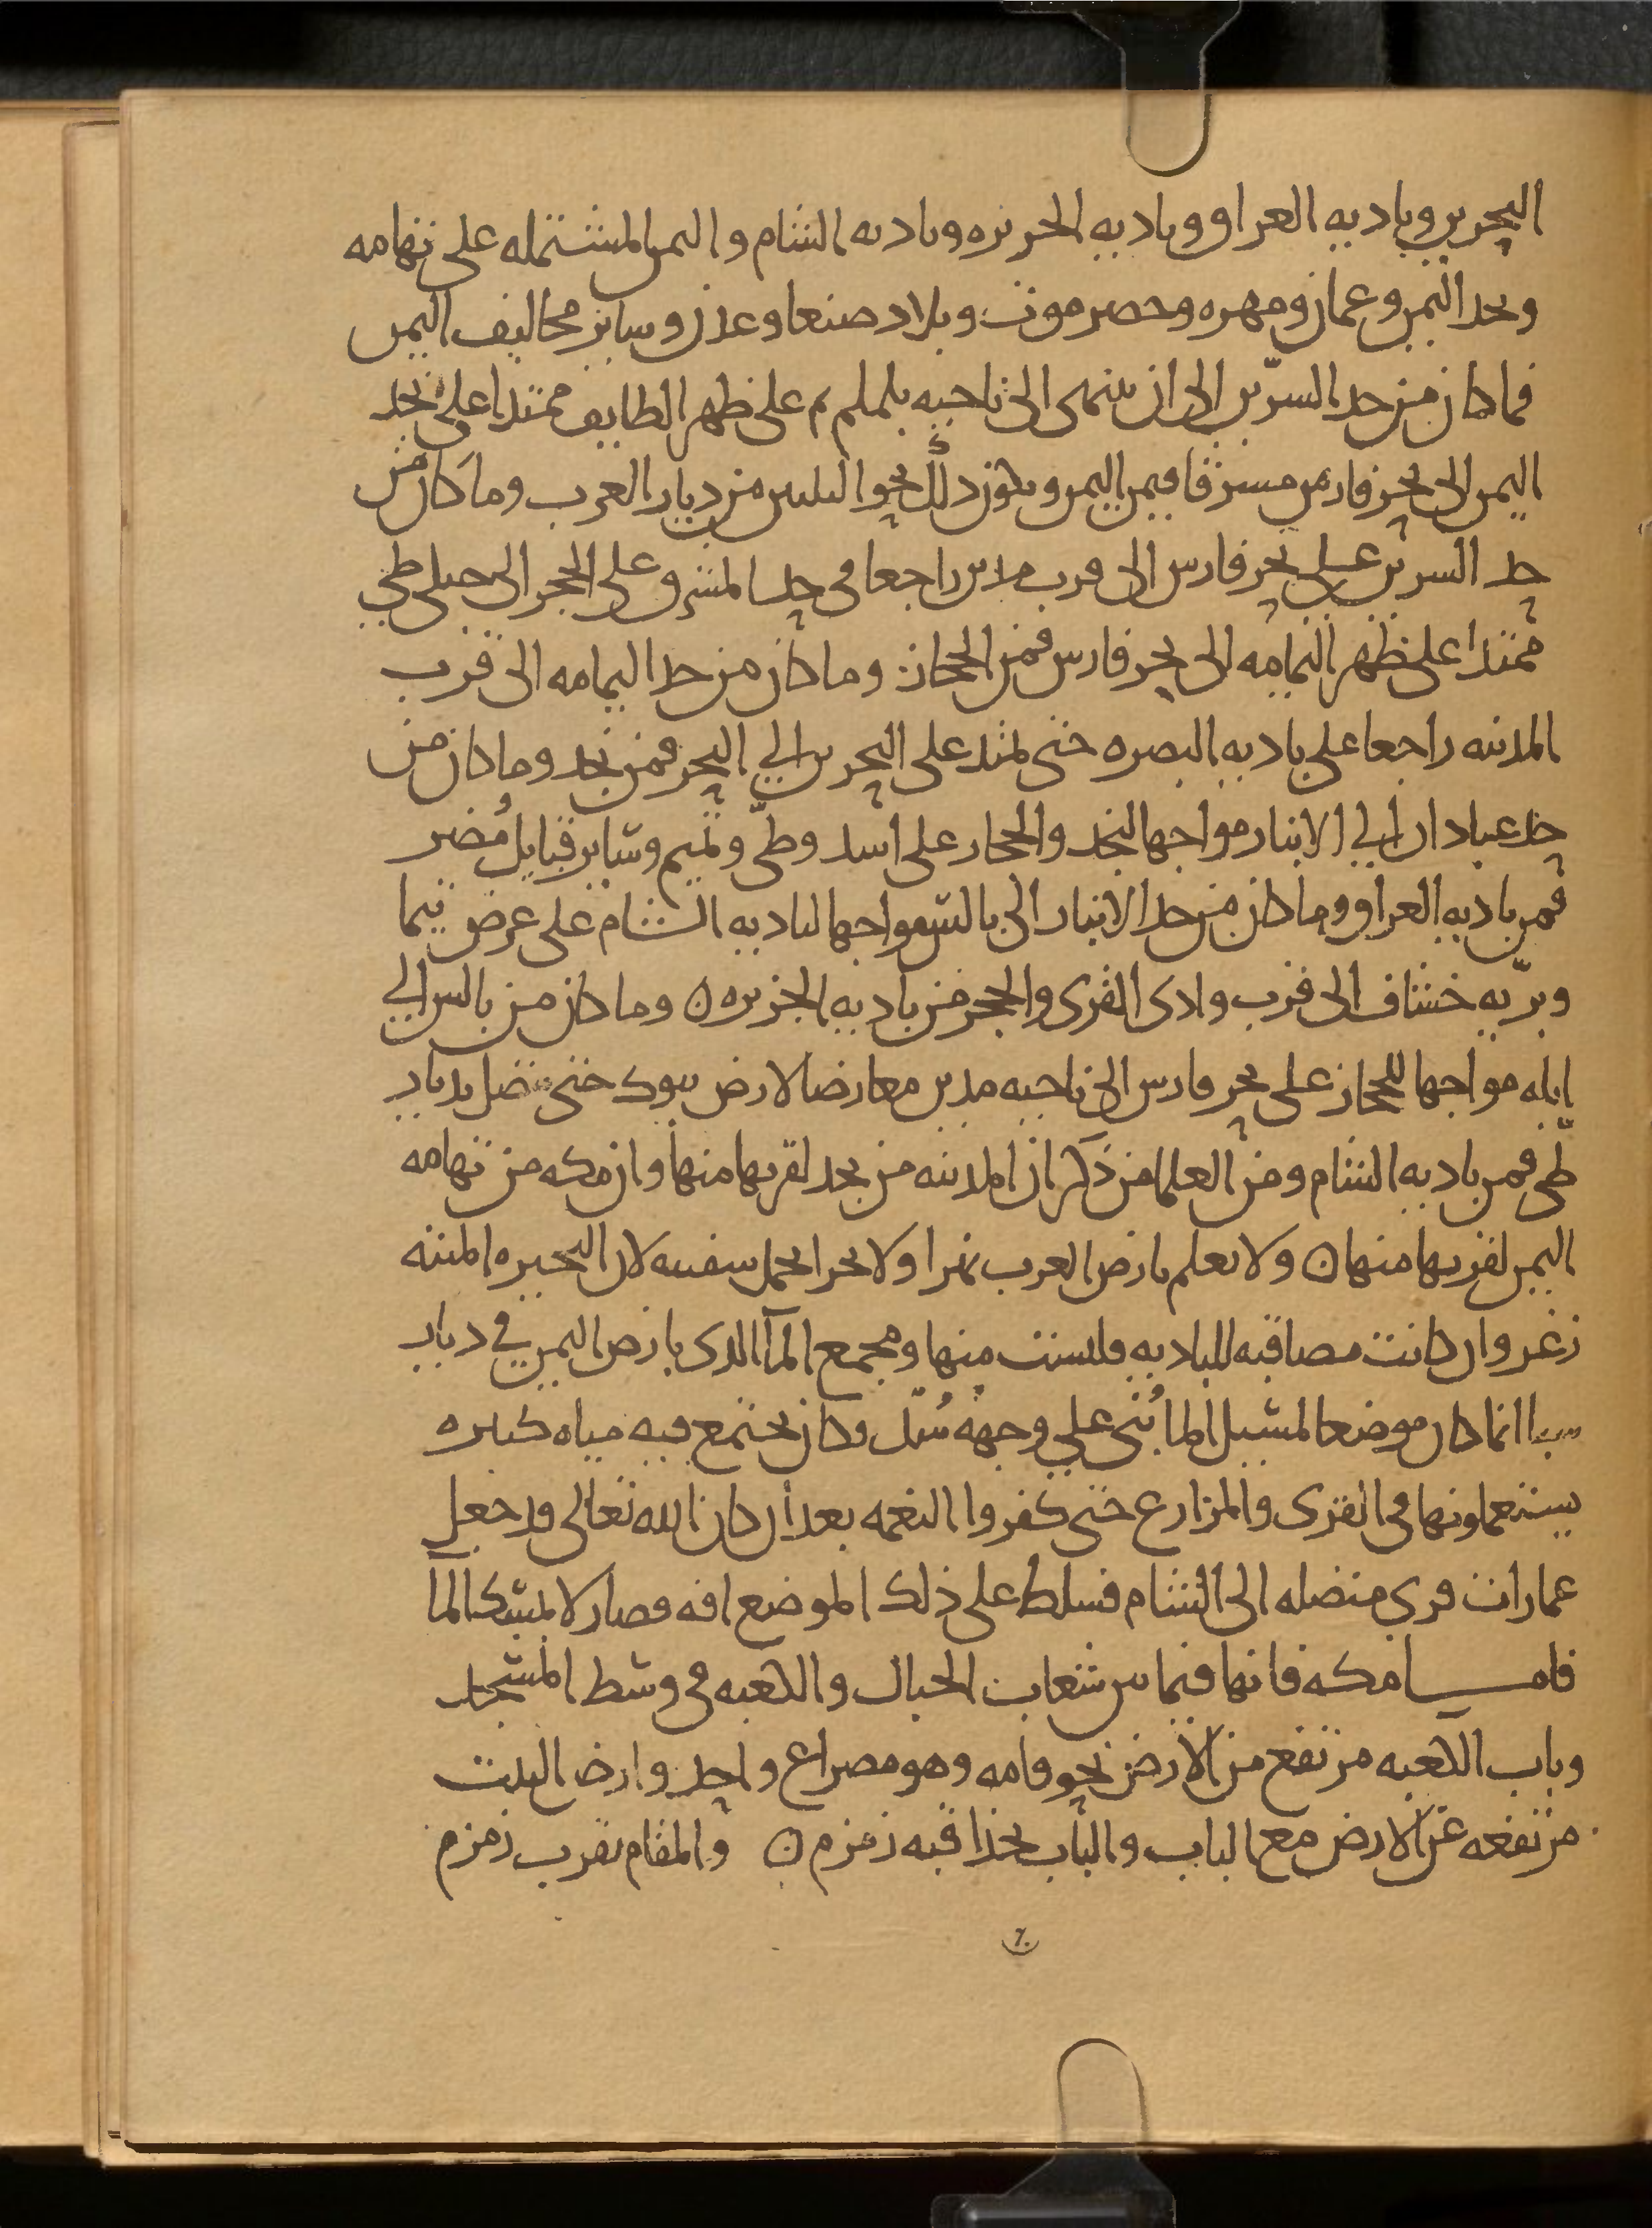 البحرين وباديه العراق وباديه الجزيره وباديه الشام واليمن المشتمله على تهامه
ونجد اليمن وعمان ومهره وحضرموت وبلاد صنعا وعدن وساير مخاليف اليمن
فما كان من حد السرّين الى ان ينتهى الى ناحيه يلملم ثم على ظهر الطايف ممتدا على نجد
اليمن الى بحر فارس مشرقا فمن اليمن ويكون ذلك نحو الثلثين من ديار العرب وما كان من
حد السرين على بحر فارس الى قرب مدين راجعا فى حد المشرق على الحجر الى جبلى طي
ممتدا على ظهر اليمامه الى بحر فارس فمن الحجاز وما كان من حد اليمامه الى قرب
المدينه راجعا على باديه البصره حتى يمتد على البحرين الي البحر فمن نجد وما كان من
حد عبادان الي الانبار مواجها لنجد والحجاز على اسد وطيّ وتميم وساير قبايل مُضر
فمن باديه العراق وما كان من حد الانبار الى بالس مواجها لباديه الشام على عرض تيما
وبرّيه خساف الى قرب وادى القرى والحجر فمن باديه الجزيره ن وما كان من بالس الي
ايله مواجها للحجاز على بحر فارس الى ناحيه مدين معارضا لارض تبوك حتى يتصل بديار
طيّ فمن باديه الشام ومن العلما من ذكر ان المدينه من نجد لقربها منها وان مكه من تهامه
اليمن لقربها منها ن ولا نعلم بارض العرب نهرا ولا بحرا يحمل سفينه لان البحيره الميته
زغر وان كانت مصاقبه للباديه فليست منها ومجمع المآ الذى بارض اليمن في ديار
سبا انما كان موضعا لمسيل الما بُنى على وجهه سُدّ وكان يجتمع فيه مياه كثيره
يستعملونها فى القرى والمزارع حتى كفروا النعمه بعد ان كان الله تعالى قد جعل
عمارات قرى متصله الى الشام فسلط على ذلك الموضع افه فصار لا يمسك المآ
فامـــا مكه فانها فيما بين شعاب الجبال والكعبه فى وسط المسجد
وباب الكعبه مرتفع من الارض نحو قامه وهو مصراع واحد وارض البيت
مرتفعه عن الارض مع الباب والباب بحذا قبه زمزم ن والمقام بقرب زمزم